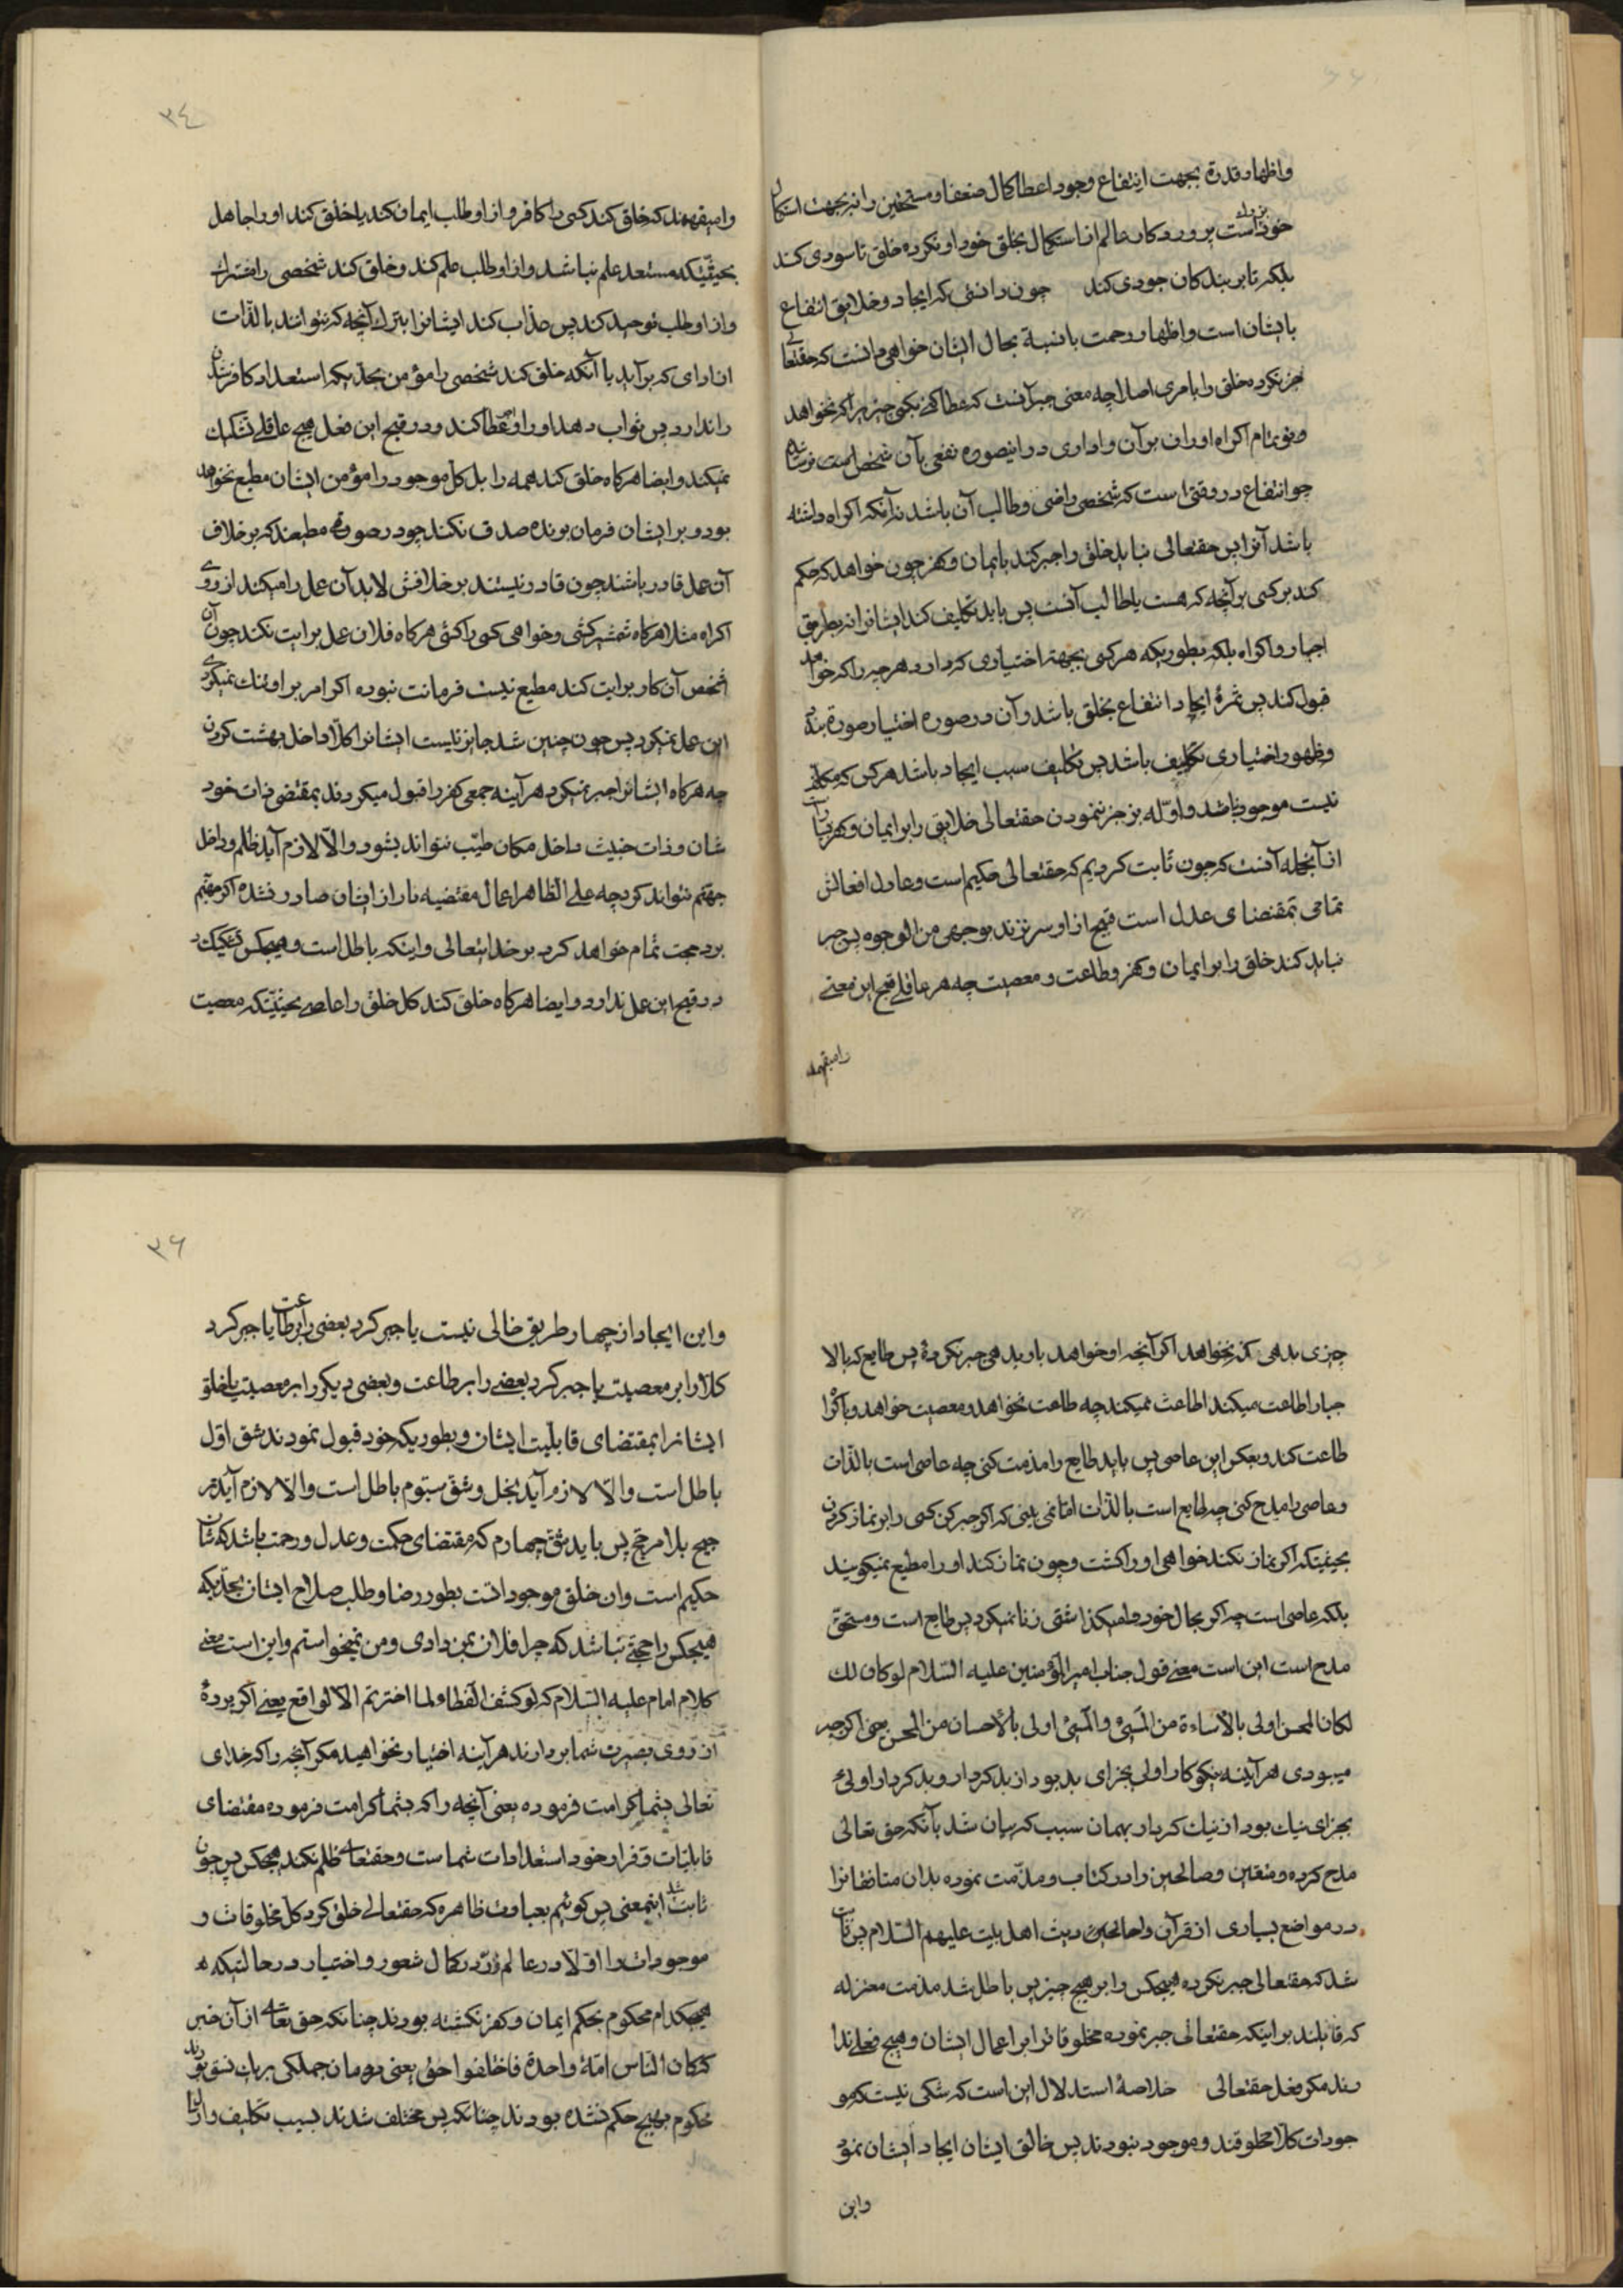 واظهار قدرة بجهت انتفاع وجود اعطا کمال ضعفا و مستحقین را نه بجهت استکمال
خود بزرگ است پروردکار عالم از استکمال بخلق خود او نکرده خلق تا سودی کند
بلکه تا بر بندکان جودی کند چون دانستی که ایجاد وخلایق انتفاع
بایشان است واظهار رحمت بالنسبة بحال ایشان خواهی دانست که حقتعالی
جبر نکرده خلق را بامری اصلا چه معنی جبر آنست که عطا کنی بکسی چیزیرا که نخواهد
وتو بتمام اکراه او را بر آن واداری در اینصورة نفعی بآن شخص است نرساند
چو انتفاع در وقتی است که شخص راضی وطالب آن باشد نه آنکه اکراه داشته
باشد آنرا پس حقتعالی نباید خلق را جبر کند بایمان وکفر چون خواهد که حکم
کند بر کسی بر آنچه که هست یا طالب آنست پس باید تکلیف کند ایشانرا نه بطریق
اجبار واکراه بلکه بطوریکه هر کسی بجهة اختیاری که دارد هر چیز را که خواهد
قبول کند پس ثمرۀ ایجاد انتفاع بخلق باشد وآن در صورة اختیار صورة بندد
وظهور اختیاری بتکلیف باشد پس تکلیف سبب ایجاد باشد هر کس که مکلف
نیست موجود نباشد و ادله بر جبر ننمودن حقتعالی خلایق را بر ایمان وکفر بسیار است
از آنجمله آنست که چون ثابت کردیم که حقتعالی حکیم است وعادل افعالش
تمامی بمقتضای عدل است قبیح از او سر نزند بوجهی من الوجوه پس جبر
نباید کند خلق را بر ایمان وکفر وطاعت ومعصیت چه هر عاقلی قبح این معنی
را میفهمد
۳٤
را میفهمد که خلق کند کسی را کافر واز او طلب ایمان کند یا خلق کند او را جاهل
بحیثیتیکه مستعد علم نباشد واز او طلب علم کند وخلق کند شخصی را مشرک
واز او طلب توحید کند پس عذاب کند ایشانرا بترک آنچه که نتوانند بالذات
از ادای که بر آید با آنکه خلق کند شخصی را مؤمن بحدیکه استعداد کافر شدن
را ندارد پس ثواب دهد او را وعطا کند ودر قبح این فعل هیچ عاقلی تشکیک
نمیکند وایضا هر کاه خلق کند همه را بل کل موجود را مؤمن ایشان مطیع نخواهند
بود وبر ایشان فرمان بونده صدق نکند چو در صورتی مطیعند که بر خلاف
آن عمل قادر باشند چون قادر نیستند بر خلافش لابد آن عمل را میکنند از روی
اکراه مثلا هر کاه شمشیر کشی وخواهی کسی را کشی هر کاه فلان عمل برایت نکند چون آن
شخص آن کار برایت کند مطیع نیست فرمانت نبرده اکر امر بر او تنک نمیکردی
این عمل نمیکرد پس چون چنین شد جایز نیست ایشانرا کلا داخل بهشت کردن
چه هر کاه ایشانرا جبر نمیکرد هر آینه جمعی کفر را قبول میکردند بمقتضی ذات خود
شان وذات خبیث داخل مکان طیب نتواند بشود والا لازم آید ظلم وداخل
جهنم نتواند کرد چه علی الظاهر اعمال مقتضیه نار از ایشان صادر نشده اکر بجهنم
برد حجت تمام خواهد کرد بر خدایتعالی واینکه باطل است وهیچکس تشکیک
در قبح این عمل ندارد وایضا هر کاه خلق کند کل خلق را عاصی بحیثیتیکه معصیت
چیزی بدهی که نخواهد اکر آنچه او خواهد باو بدهی جبر نکردۀ پس طایع که بالا
جبار اطاعت میکند اطاعت نمیکند چه طاعت نخواهد ومعصیت خواهد وباکراه
طاعت کند وبعکس این عاصی پس باید طایع را مذمت کنی چه عاصی است بالذات
وعاصی را مدح کنی چه طایع است بالذات امّا نمی بینی که اکر جبر کنی کسی را بر نماز کردن
بحیثیتیکه اکر نماز نکند خواهی او را کشت وچون نماز کند او را مطیع نمیکویند
بلکه عاصی است چه اکر بحال خود وامیکذاشتی زنا نمیکرد پس طایع است ومستحق
مدح است این است معنی قول جناب امیر المؤمنین علیه السّلام لو کان کذلک
لکان المحسن اولی بالاساءة من المسیئ والمسیئ اولی بالأحسان من المحسن یعنی اکر جبر
میبودی هر آینه نیکوکار اولی بجزای بد بود از بدکردار وبدکردار اولی
بجزای نیک بود از نیک کردار بهمان سبب که بیان شد بآنکه حق تعالی
مدح کرده ومتقین وصالحین را در کتاب ومذمت نموده بدان منافقانرا
در مواضع بسیاری از قرآن واحادیث اهل بیت علیهم السّلام پس ثابت
شد که حقتعالی جبر نکرده هیچکس را بر هیچ چیز پس باطل شد مذمت معتزله
که قایلند بر اینکه حقتعالی جبر نموده مخلوقاترا بر اعمال ایشان وهیچ فعلی ندا
رند مکر فعل حقتعالی خلاصۀ استدلال این است که شکی نیست که مو
جودات کلا مخلوقند وموجود نبودند پس خالق ایشان ایجاد ایشان نمود
واین
۳۶
واین ایجاد از چهار طریق خالی نیست یا جبر کرد بعضی را بر طاعت یا جبر کرد
کلا را بر معصیت یا جبر کرد بعضی را بر طاعت وبعضی دیکر را بر معصیت یا خلق
ایشانرا بمقتضای قابلیت ایشان وبطوریکه خود قبول نمودند شق اوّل
باطل است والّا لازم آید بخل وشق سیّوم باطل است والّا لازم آید تر
جیح بلا مرجّح پس باید شق چهارم که مقتضای حکمت وعدل ورحمت باشد که شان
حکیم است وآن خلق موجوداتست بطور رضا وطلب صلاح ایشان بحدّیکه
هیچکس را حجتی نباشد که چرا فلان بمن دادی ومن نمیخواستم واین است معنی
کلام امام علیه السّلام که لو کشف الغطا ولما اخترتم الّا الواقع یعنی اکر پردۀ
از روی بصیرت شما بردارند هر آینه اختیار نخواهید مکر آنچه را که خدای
تعالی بشما کرامت فرموده یعنی آنچه را که بشما کرامت فرموده مقتضای
قابلیّات وقرار خود استعدادات شماست وحقتعالی ظلم نکند بهیچکس پس چون
ثابت شد اینمعنی پس کوئیم بعبارت ظاهره که حقتعالی خلق کرد کل مخلوقات و
موجودات را اوّلا در عالم ذرّ در کمال شعور واختیار در حالتیکه
هیچکدام محکوم بحکم ایمان وکفر نکشته بودند چنانکه حق تعالی از آن خبر
کان النّاس امّة واحدة فاختلفوا یعنی مردمان جملکی بریک نسق بودند
محکوم بهیچ حکم نشده بودند چنانکه پس مختلف شدند بسبب تکلیف